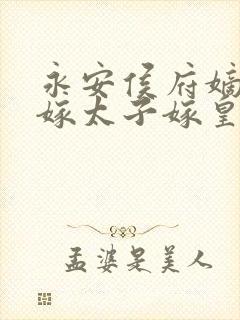 永安侯府嫡
嫁太子嫁皇
孟婆是美人